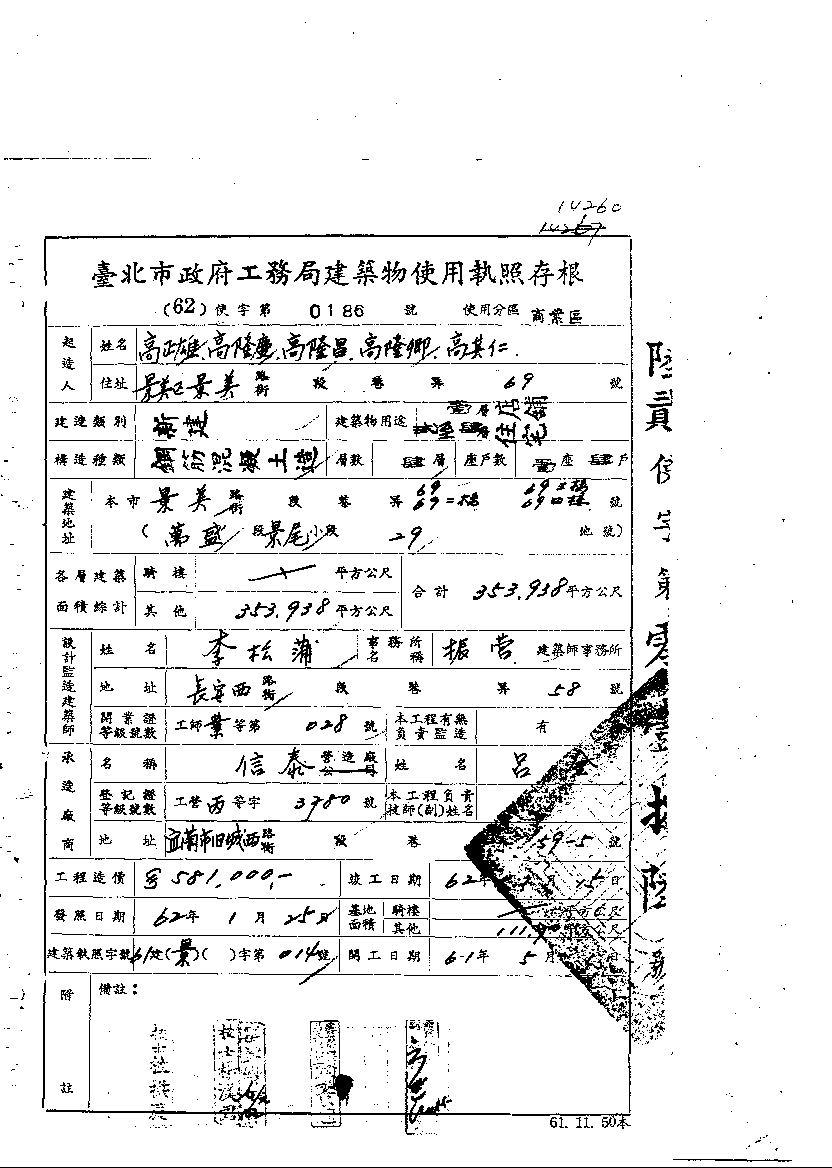 14260
臺北市政府工務局建築物使用執照存根
(62)使字第 0186 號 使用分區 商業區
起造人 姓名 高正雄、高隆慶、高隆昌、高隆卿、高其仁
住址 景美區景美 路街 段 巷 弄 69 號
建造類別 新建 建築物用途 壹層店舖 貳至肆層住宅
構造種類 鋼筋混凝土造 層數 肆層 座戶數 壹座 肆戶
建築地址 本市 景美 路街 段 巷 弄 69 69二樓 69三樓 69四樓 號
(萬盛 段 景尾 小段 29 地號)
各層建築面積綜計 騎樓 平方公尺 合計 353.938 平方公尺
其他 353.938 平方公尺
設計監造建築師 姓名 李松蒲 事務所名稱 振營 建築師事務所
地址 長安西 路街 段 巷 弄 58 號
開業證等級號數 工師業等第 028 號 本工程有無負責監造 有
承造廠商 名稱 信泰 營造廠 公司 姓名 呂
登記證等級號數 工營丙等字 3780 號 本工程負責技師(副)姓名
地址 宜蘭市旧城西 路街 段 巷 59-5 號
工程造價 581,000,- 竣工日期 62年 月 15日
發照日期 62年 1月 25日 基地面積 騎樓 平方公尺
其他 平方公尺
建築執照字號 61建(景)( )字第 014 號 開工日期 61年 5月 日
附註 備註：
61.11.50本